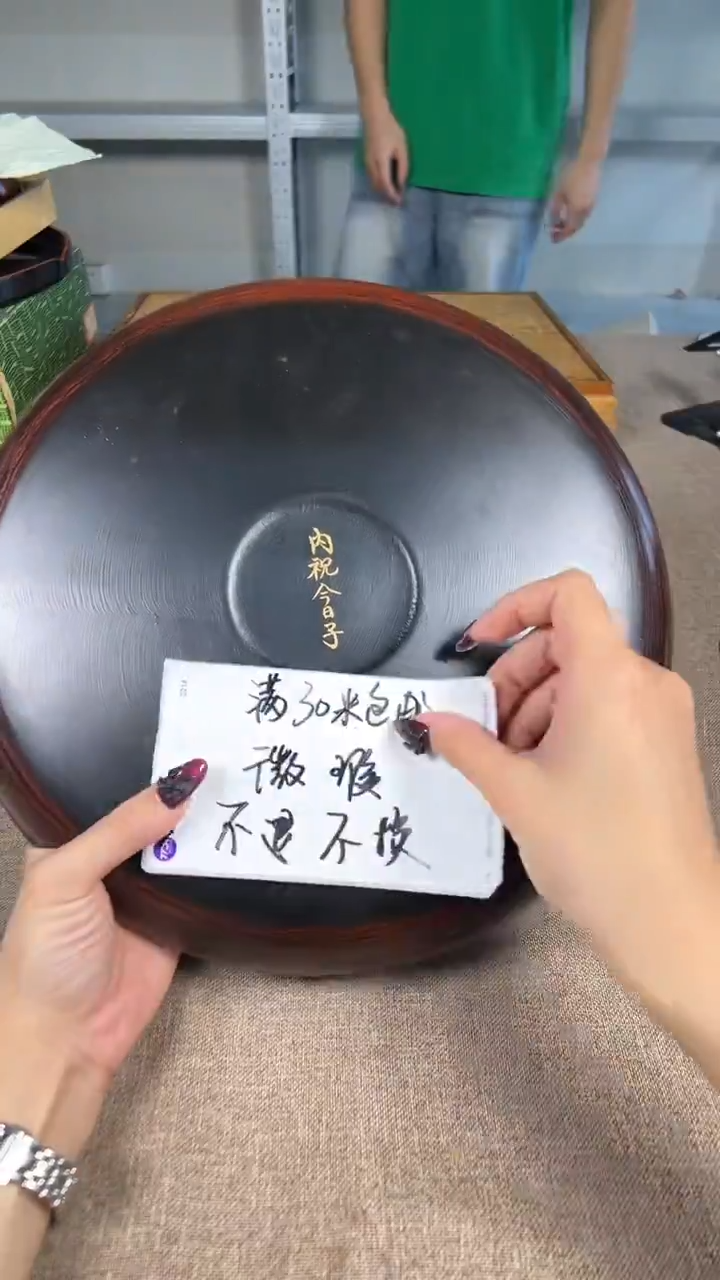 内祝今日子
满30米包邮
微瑕
不退不换